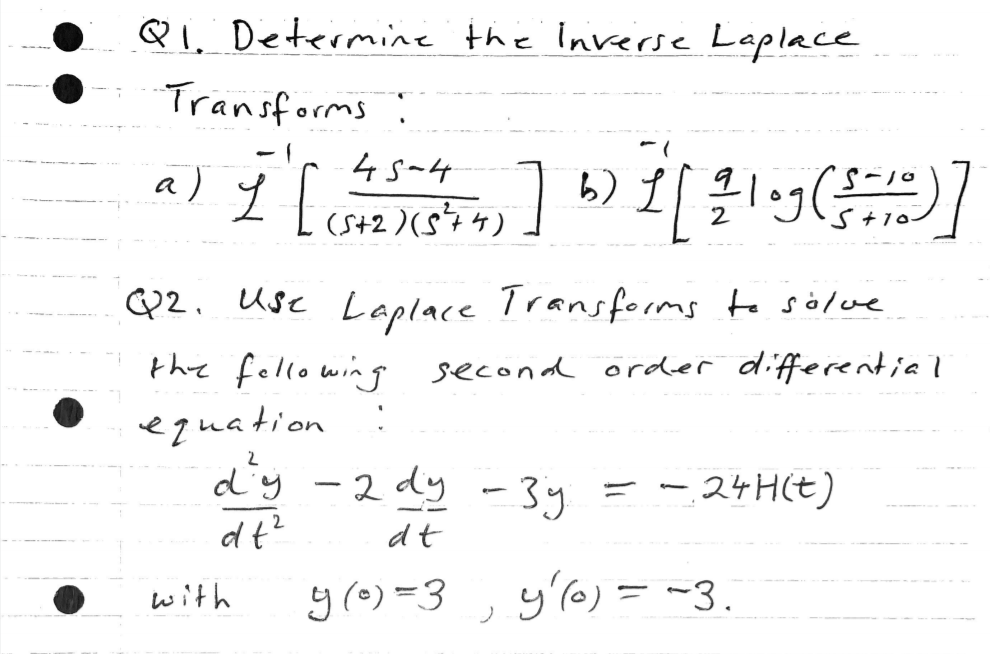 Q1. Determine the Inverse Laplace
Transforms :
a) ℒ⁻¹[(4s-4)/((s+2)(s²+4))] b) ℒ⁻¹[9/2 log((s-10)/(s+10))]
Q2. Use Laplace Transforms to solve
the following second order differential
equation :
d²y/dt² - 2 dy/dt - 3y = -24H(t)
with y(0)=3, y'(0) = -3.